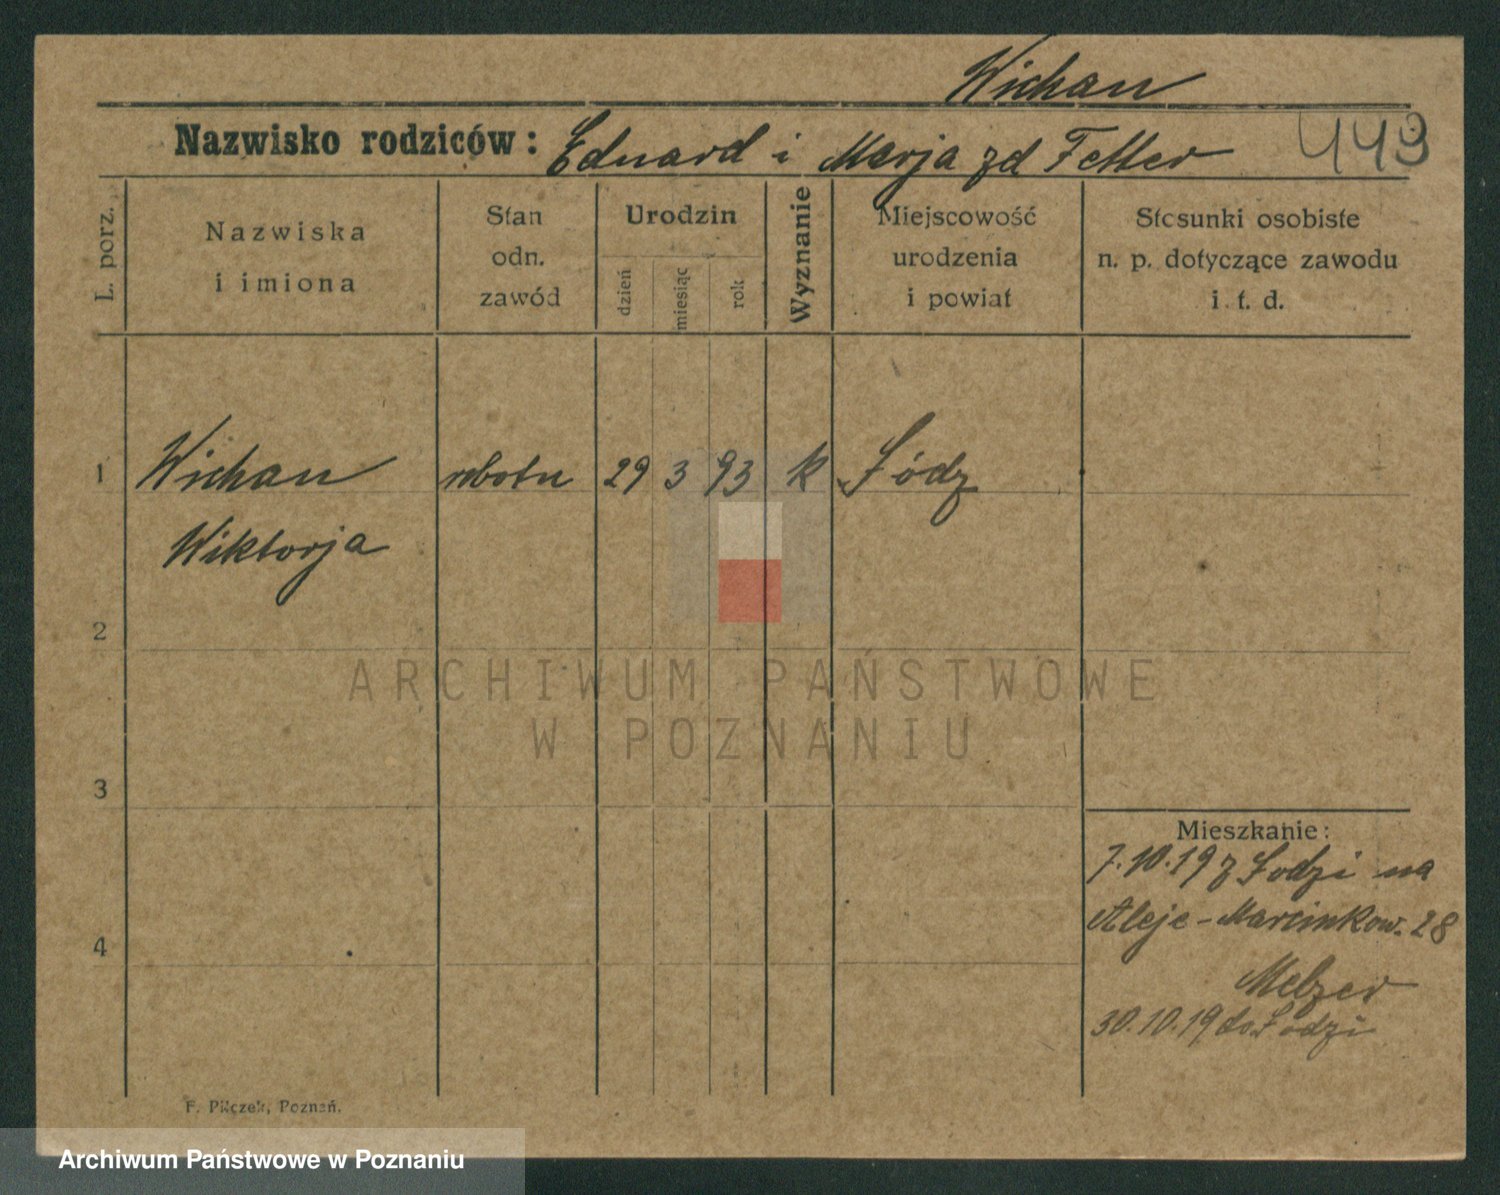 Wichan
Nazwisko rodziców: Eduard i Marja zd Fetter
443
L. porz.
Nazwiska
i imiona
Stan
odn.
zawód
Urodzin
dzień
miesiąc
rok
Wyznanie
Miejscowość
urodzenia
i powiat
Stosunki osobiste
n. p. dotyczące zawodu
i. t. d.
1 Wichan robotn 29 3 93 k Łódz
Wiktorja
2
ARCHIWUM PAŃSTWOWE
W POZNANIU
3
Mieszkanie:
7.10.19 z Łodzi na
Aleje-Marcinkow. 28
Melzer
4
30.10.19 do Łodzi
F. Pilczek, Poznań.
Archiwum Państwowe w Poznaniu